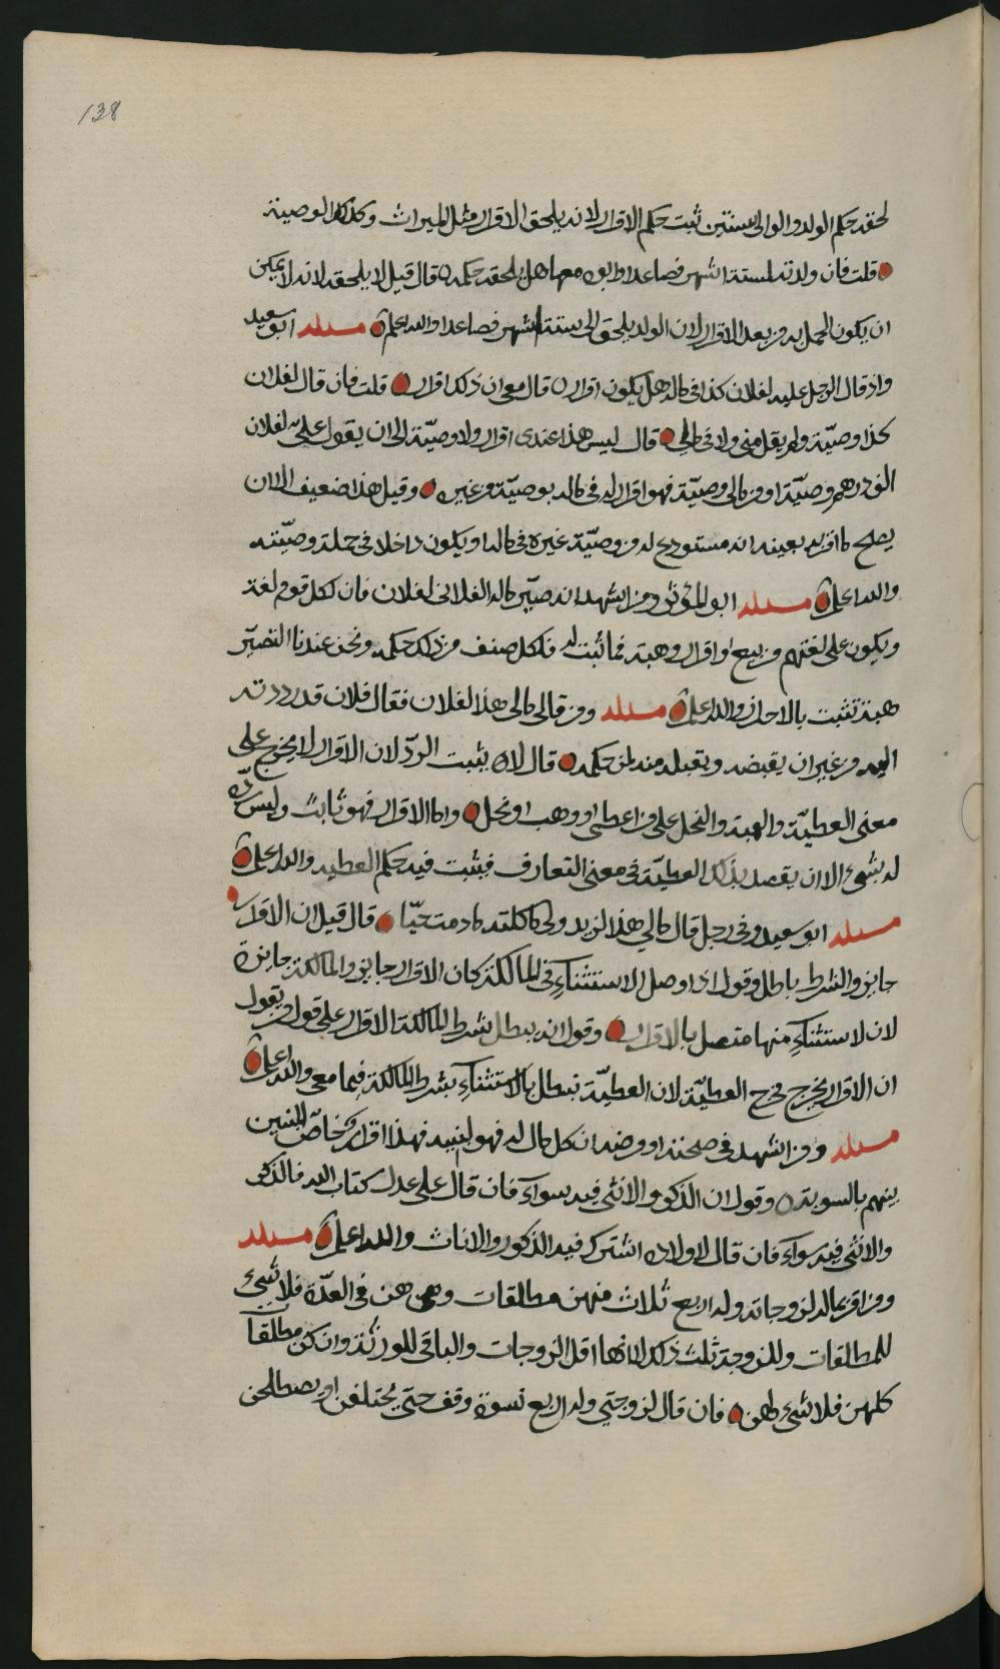 138
لحقه حكم الولد والوالى لسنتين ثبت حكم الاقرار لانه يلحق الاقرار مثل الميراث وكذلك الوصية
قلت فان ولدته لستة اشهر فصاعدا وابوه معها هل يلحقه حكمه قال قيل لا يلحقه لانه لا يمكن
ان يكون الحمل به من بعد الاقرار لان الولد يلحق الى ستة اشهر فصاعدا والله اعلم مسئلة ابو سعيد
واذ قال الرجل عليه لفلان كذا فى ماله هل يكون اقرار قال معى ان ذلك اقرار قلت فان قال لفلان
كذا وصيّة ولم يقل منى ولا فى مالى قال ليس هذا عندى اقرار ولا وصيّة الى ان يقول علىّ لفلان
الف درهم وصيّة او من مالى وصيّة فهو اقرار له فى ماله بوصيّة من غيره وقيل هذا ضعيف الا ان
يصلح ما اقر به بعينه انه مستودع له من وصيّة غيره فى ماله او يكون داخلا فى جملة وصيّته
والله اعلم مسئلة ابو المؤثر ومن اشهد انه صيّر ماله الفلانى لفلان فان لكل قوم لغة
ويكون على لغتهم من بيع او اقرار وهبة فما ثبت له فلكل صنف من ذلك حكمه ونحن عندنا التصيّر
هبة تثبت بالاحراز والله اعلم مسئلة ومن قال مالى هذا لفلان فقال فلان قد رددته
اليه من غير ان يقبضه ويقبله منه لمن حكمه قال لا يثبت الردّ لان الاقرار لا يخرج على
معنى العطيّة والهبة والنحل على من اعطى او وهب او نحل واما الاقرار فهو ثابتٌ وليس ردّه
له بشىء الا ان يقصد بذلك العطيّة فى معنى التعارف فيثبت فيه حكم العطيه والله اعلم
مسئلة ابو سعيد وفى رجل قال مالى هذا لزيد ولى ماكلته مادمت حيّا قال قيل ان الاقرار
جايز والشرط باطل وقول اذا وصل الاستثناءِ فى الماكلة كان الاقرار جايز والماكلة جايزة
لان لاستثناءِ منها متصل بالاقرار وقول انه يبطل بشرط الماكلة الاقرار على قول من يقول
ان الاقرار يخرج مخرج العطيّة لان العطيّة تبطل بالاستثناءِ بشرط الماكلة فيما معى والله اعلم
مسئلة ومن اشهد فى صحته او مرضه ان كل مال له فهو لبنيه فهذا اقرار وخاصّ للبنين
بينهم بالسوية وقول ان الذكور والانثى فيه سوآءَ فان قال على عدل كتاب الله فالذكر
والانثى فيه سوآءَ فان قال لاولاده اشترك فيه الذكور والاناث والله اعلم مسئلة
ومن اقر بماله لزوجاته وله اربع ثلاث منهن مطالقات وهى هن فى العدّة فلا شىء
للمطالقات وللزوجة ثلث ذلك لانها اقل الزوجات والباقى للورثة وان كن مطالقآ
كلهن فلا شىء لهن فان قال لزوجتى وله اربع نسوة وقف حتّى يختلفن او يصطالحن